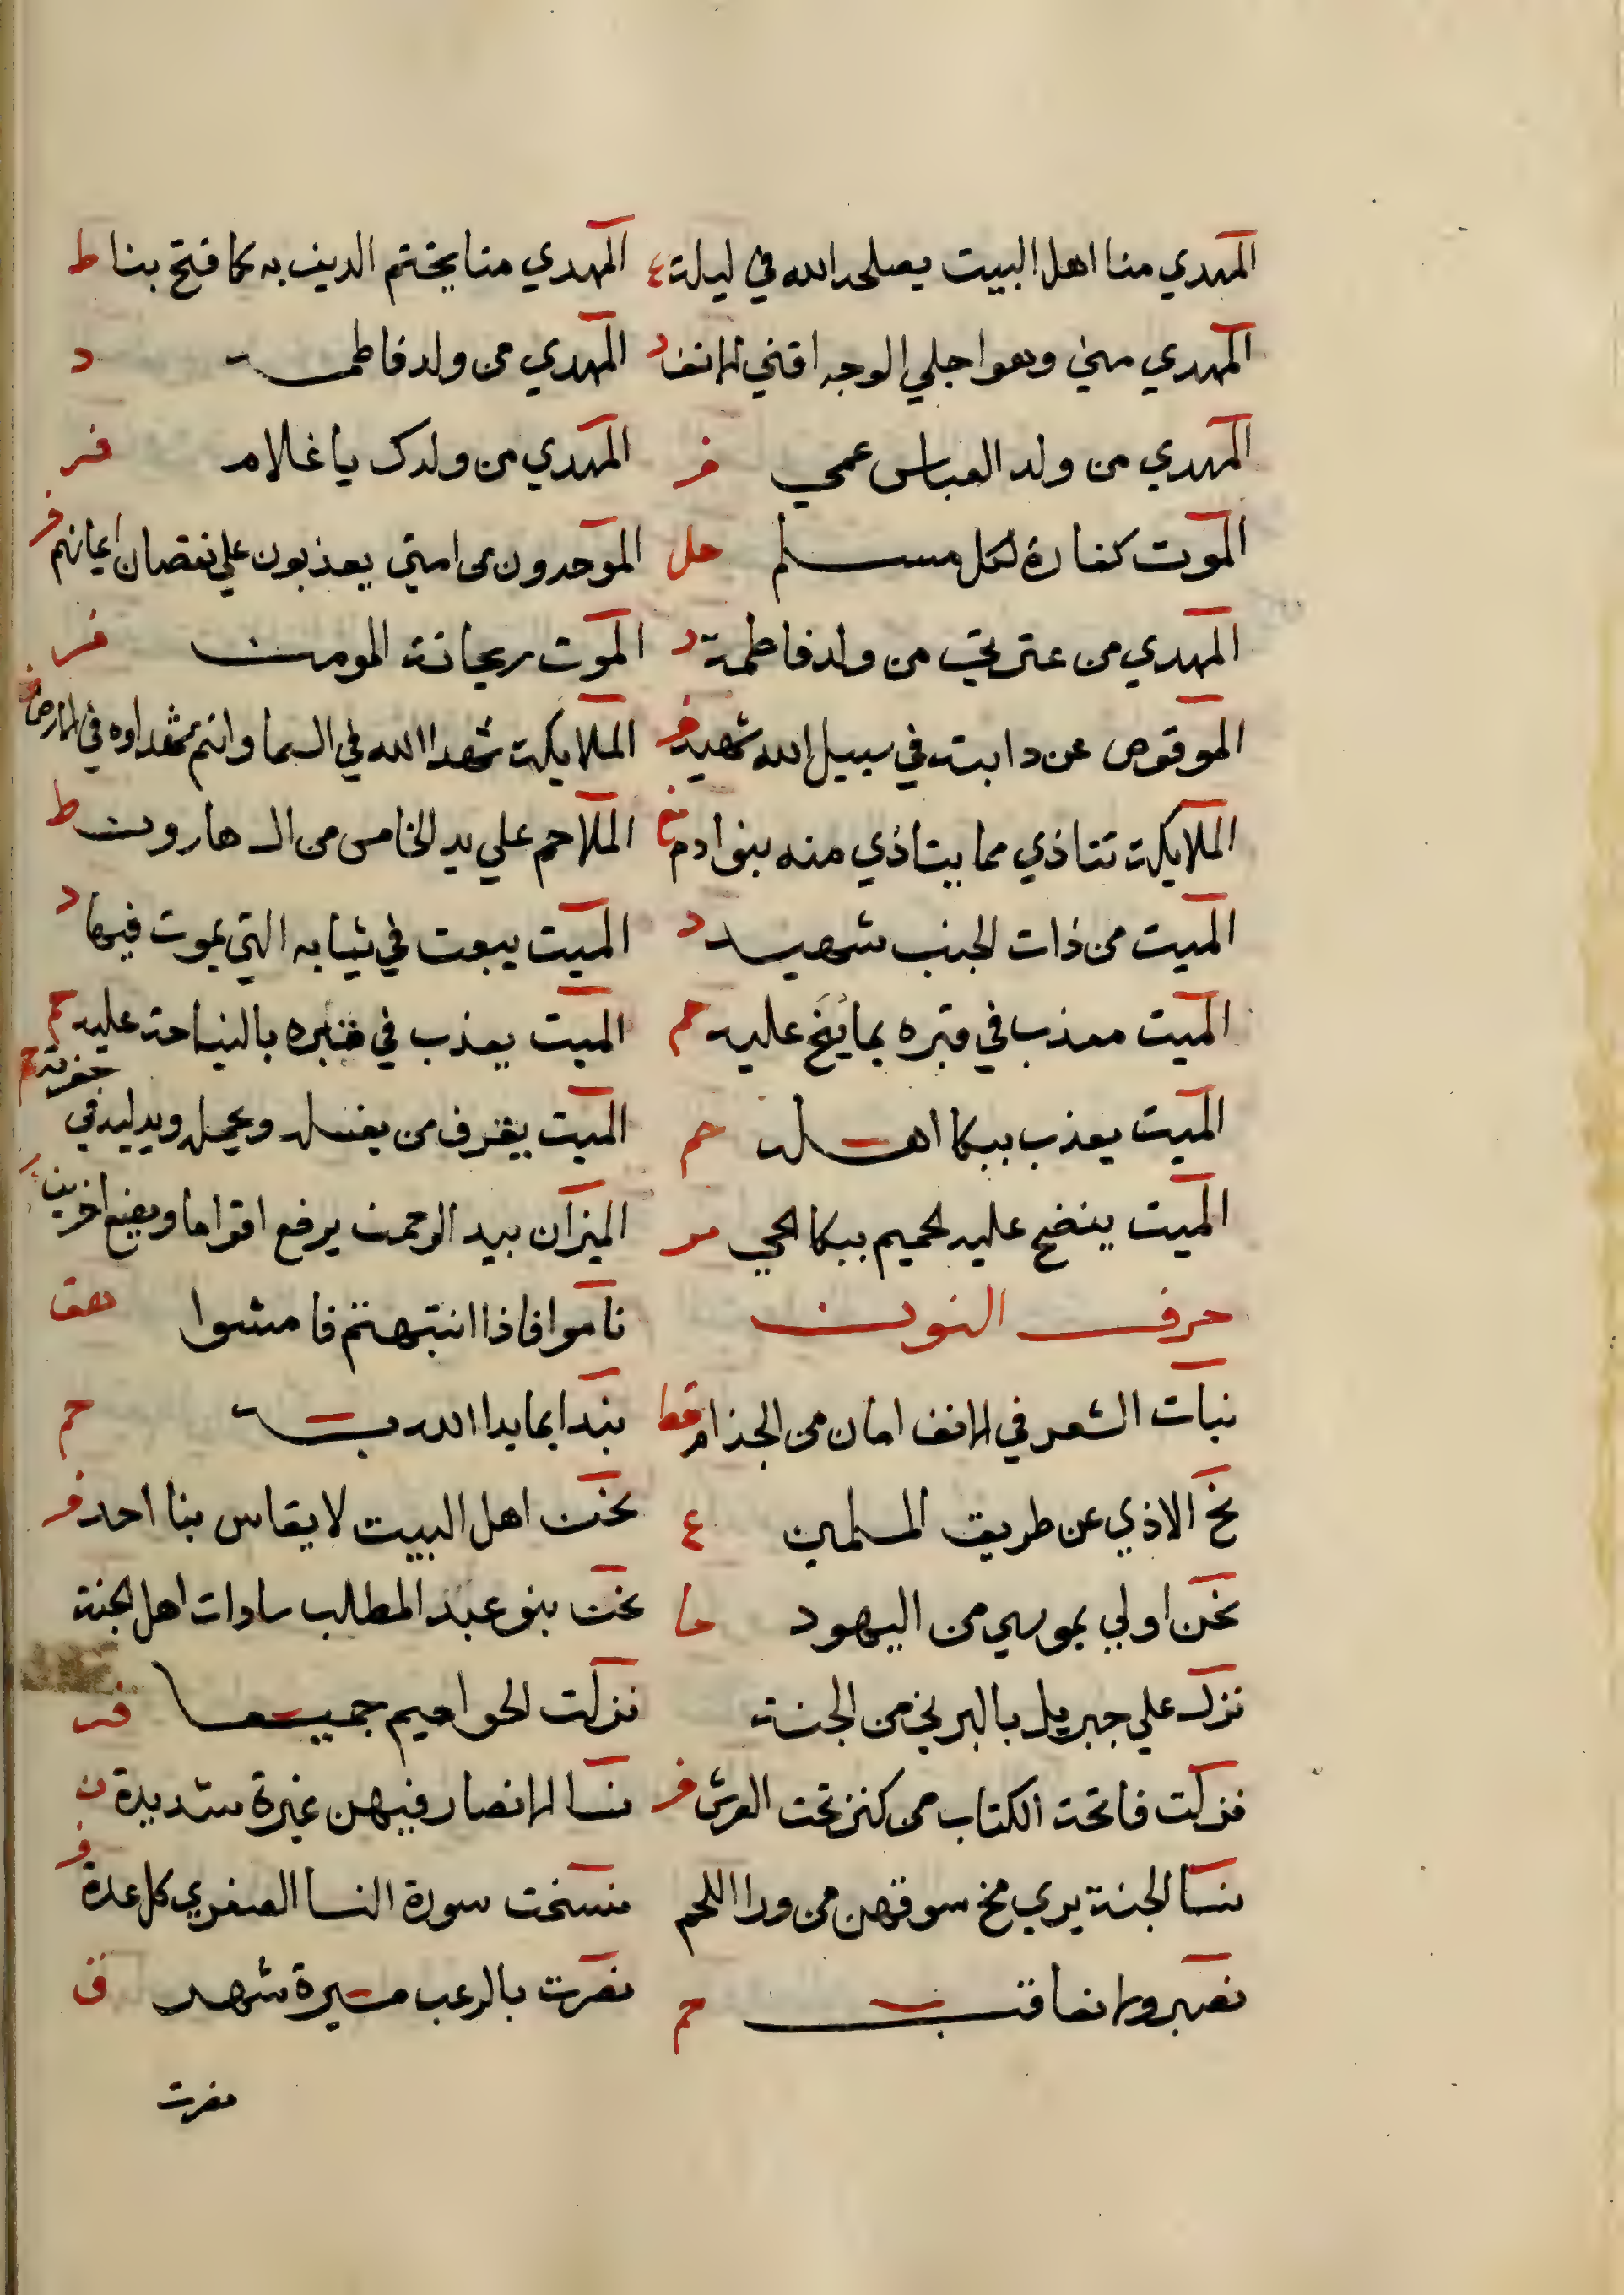 المهدي منا اهل البيت يصلحه الله في ليلة ع المهدي منا يختم الدين به كما فتح بنا ط
المهدي مني وهو اجلي الوجه اقني الانف د المهدي من ولد فاطمة د
المهدي من ولد العباس عمي فر المهدي من ولدك يا غلام فر
الموت كفارة لكل مسلم حل الموحدون من امتي يعذبون علي نقصان ايمانهم فر
المهدي من عترتي من ولد فاطمة د الموت ريحانة المومن فر
الموقوص عن دابته في سبيل الله شهيد فر الملايكة شهدا الله في السما وانتم شهداوه في الارض
الملايكة تتاذي مما يتاذي منه بنوا ادم الملاحم علي يد الخامس من ال هارون ط
الميت من ذات الجنب شهيد د الميت يبعث في ثيابه التي يموت فيها د
الميت معذب في قبره بما نيح عليه حم الميت يعذب في قبره بالنياحة عليه حم
الميت يعذب ببكا اهله حم الميت يعرف من يغسله ويحمله ويدليه في حفرته حم
الميت ينضح عليه الحميم ببكا الحي الميزان بيد الرحمن يرفع اقواما ويضع اخرين
حرف النون ناموا فاذا انتبهتم فامشوا هق
نبات الشعر في الانف امان من الجذام قط نبدا بما بدا الله به حم
نح الاذي عن طريق المسلمين ع نحن اهل البيت لا يقاس بنا احد فر
نحن اولي بموسي من اليهود حا نحن بنو عبد المطلب سادات اهل الجنة
نزل علي جبريل بالبرني من الجنة نزلت الحواميم جميعا فر
نزلت فاتحة الكتاب من كنز تحت العرش فر نسا الانصار فيهن غيرة شديدة ن
نسا الجنة يري مخ سوقهن من ورا اللحم نسخت سورة النسا الصغري كل عدة فر
نصبر ولا نعاقب حم نصرت بالرعب مسيرة شهر ق
نصرت